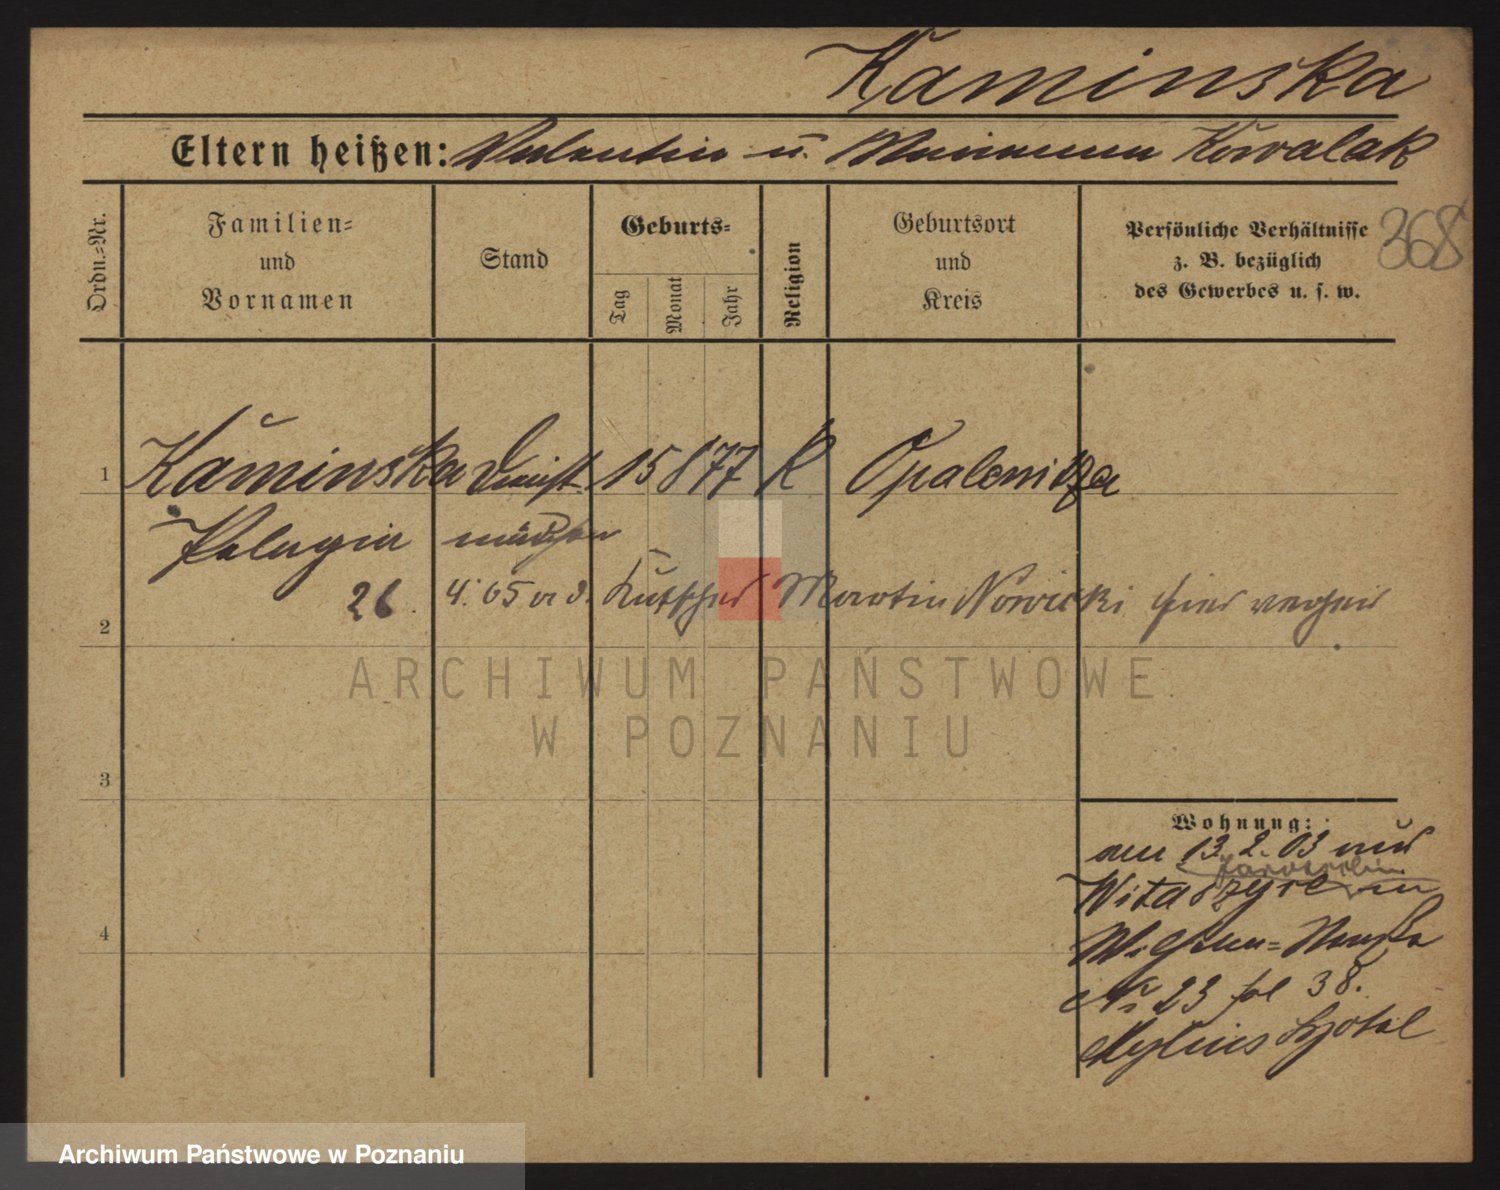 Kaminska
Eltern heißen: Valentin u. Marianna Kowalak
Ordn.-Nr.
Familien- und Vornamen
Stand
Geburts-
Tag Monat Jahr
Religion
Geburtsort und Kreis
Persönliche Verhältnisse
z. B. bezüglich
des Gewerbes u. s. w.
368
1 Kaminska Dienst 15 8 77 K Opalenitza
Pelagia mädchen
26 4. 05 Kutscher Martin Nowicki hier
2
ARCHIWUM PAŃSTWOWE
W POZNANIU
3
Wohnung:
am 13. 2. 03 aus
4
No 23 fol 38.
Mylius Hotel
Archiwum Państwowe w Poznaniu